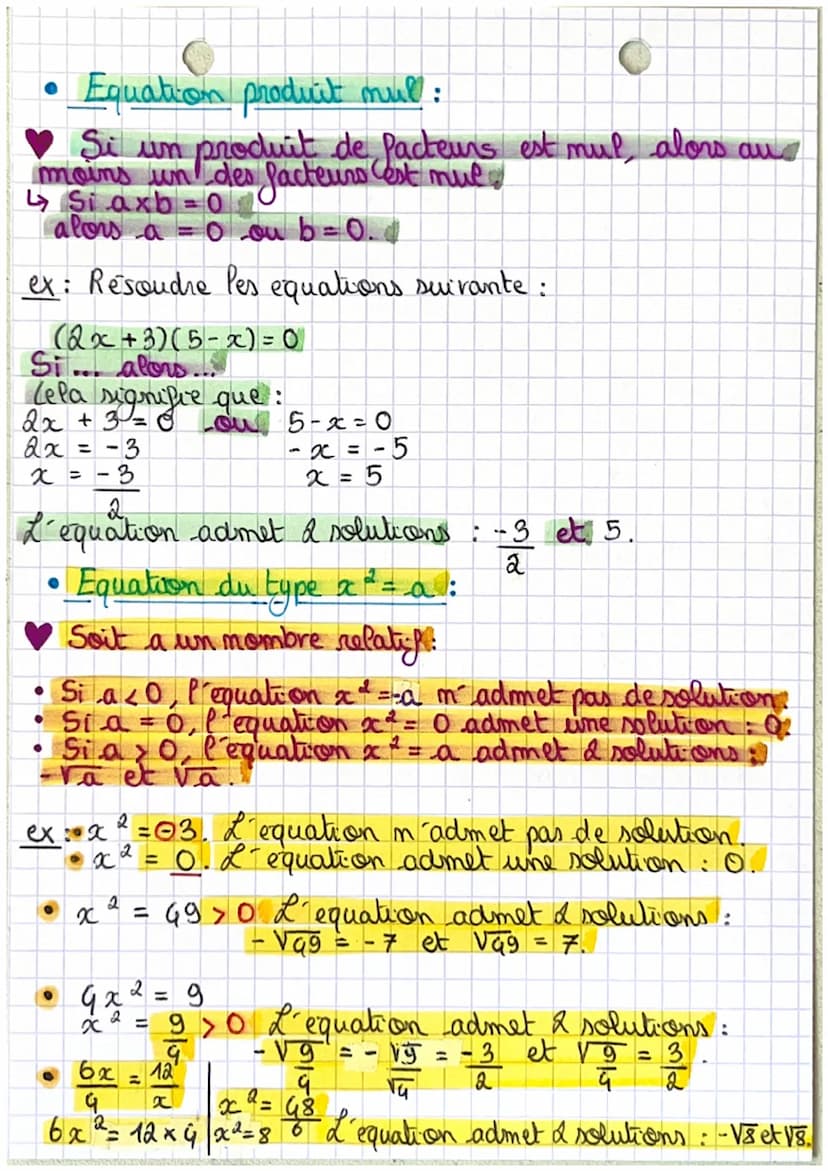 • Equation produit nul :
♥ Si un produit de facteurs est nul, alors au
moins un des facteurs est nul.
↳ Si a x b = 0
alors a = 0 ou b = 0.
ex : Résoudre les equations suivante :
(2x + 3)(5 - x) = 0
Si ... alors ...
Cela signifie que :
2x + 3 = 0 ou 5 - x = 0
2x = -3 - x = -5
x = -3/2 x = 5
L'equation admet 2 solutions : -3/2 et 5.
• Equation du type x² = a :
♥ Soit a un nombre relatif :
• Si a < 0, l'equation x² = -a n'admet pas de solution.
• Si a = 0, l'equation x² = 0 admet une solution : 0.
• Si a > 0, l'equation x² = a admet 2 solutions :
-√a et √a.
ex : • x² = -3. L'equation n'admet pas de solution.
• x² = 0. L'equation admet une solution : 0.
• x² = 49 > 0 L'equation admet 2 solutions :
-√49 = -7 et √49 = 7.
• 4x² = 9
x² = 9/4 > 0 L'equation admet 2 solutions :
-√9/4 = -√9/√4 = -3/2 et √9/4 = 3/2.
• 6x/4 = 12/x x² = 48/6
6x² = 12 x 4 x² = 8 L'equation admet 2 solutions : -√8 et √8.